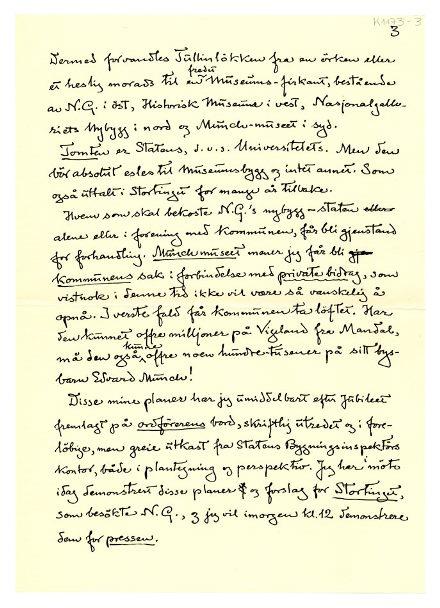 K1173-3
3
Dermed forvandles Tullinlökken fra en örken eller
et heslig morads til en fredet Museums-firkant, bestående
av N.G. i öst, Historisk Museum i vest, Nasjonalgalle-
riets Nybygg i nord og Munch-museet i syd.
Tomten er Statens, d.v.s. Universitetets. Men den
bör absolut esles til Museumsbygg og intet annet. Som
også uttalt i Stortinget for mange år tilbake.
Hvem som skal bekoste N.G.'s nybygg – staten eller
alene eller i forening med kommunen, får bli gjenstand
for forhandling. Munch museet mener jeg får bli
kommunens sak i forbindelse med private bidrag, som
vistnok i denne tid ikke vil være så vanskelig å
opnå. I verste fald får kommunen ta löftet. Har
den kunnet offre millioner på Vigeland fra Mandal,
må den også kunne offre noen hundre-tusener på sitt bys-
barn Edvard Munch!
Disse mine planer har jeg umiddelbart efter Jubileet
fremlagt på ordförerens bord, skriftlig utredet og i fore-
löbige, men greie utkast fra Statens Bygningsinspektörs
kontor, både i plantegning og perspektiv. Jeg har
idag demonstrert disse planer og forslag for Stortinget,
som besökte N.G., og jeg vil imorgen kl. 12 demonstrere
dem for pressen.